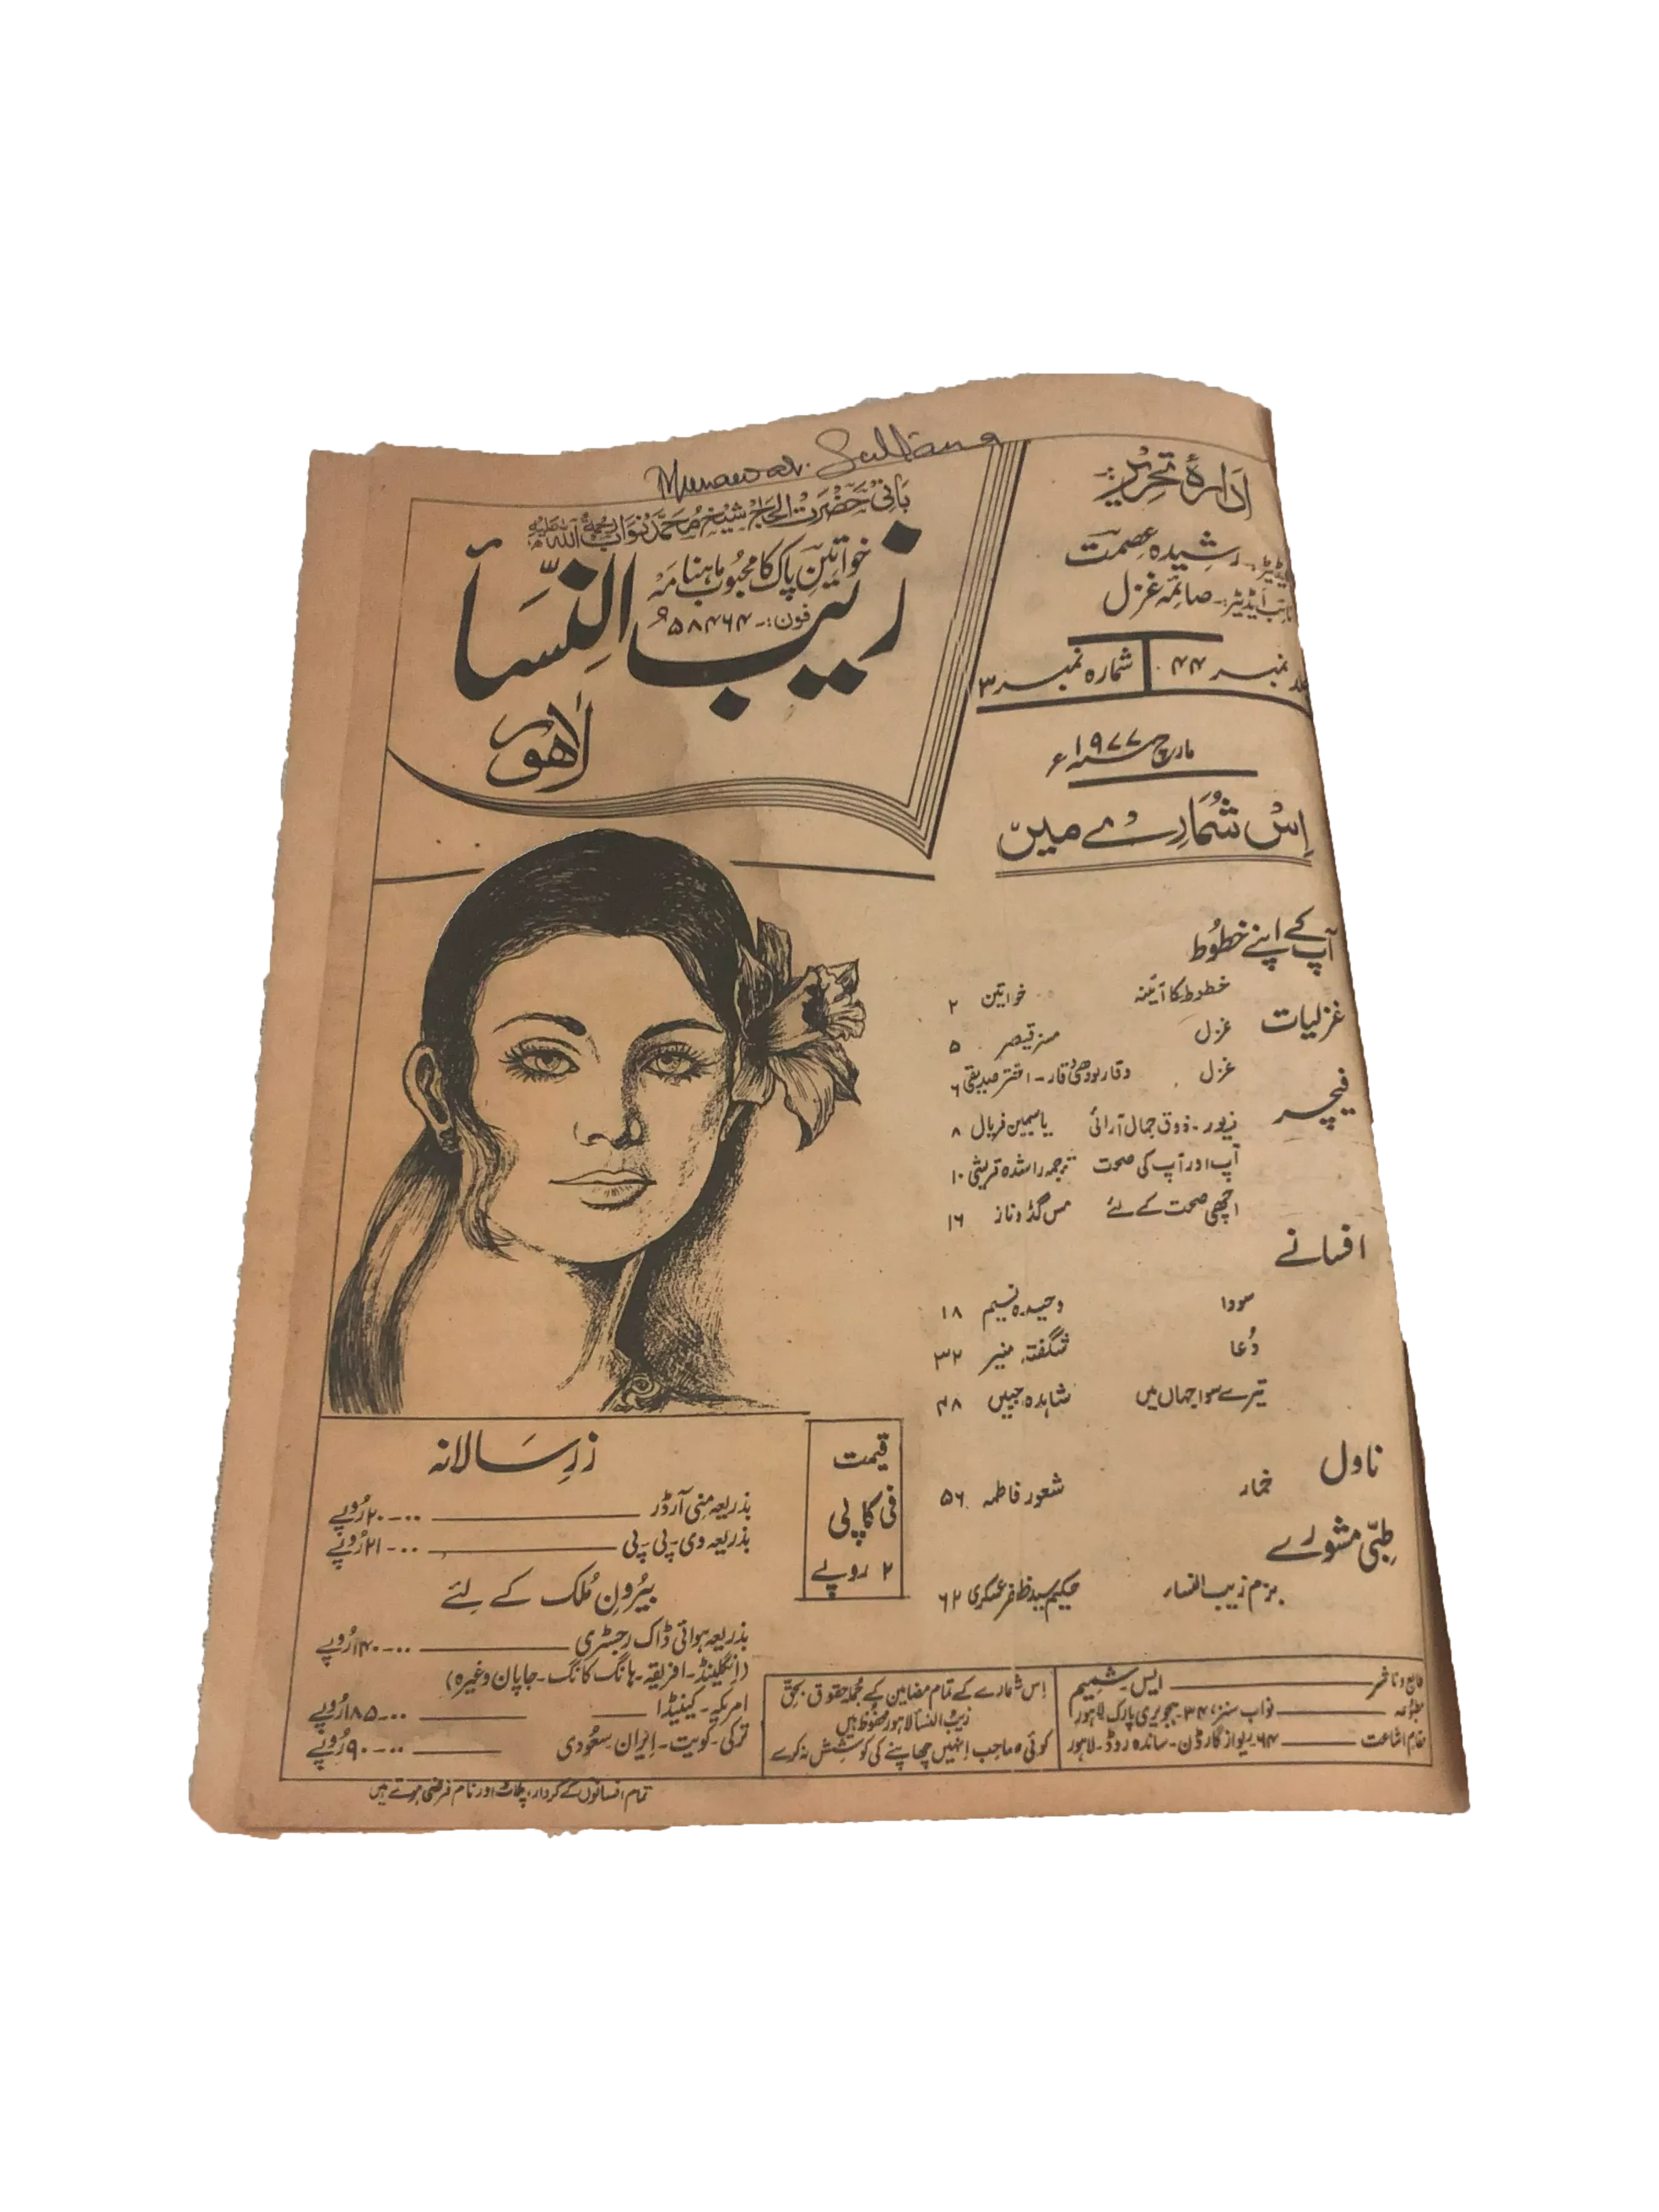 Munawar Sultana
بانی حضرت الحاج شیخ محمد نواب رحمۃ اللہ علیہ
خواتینِ پاک کا محبوب ماہنامہ
زیب النساء
فون:- ۵۸۴۶۴
لاہور
ادارۂ تحریر
ایڈیٹر:- رشیدہ عصمت
نائب ایڈیٹر:- صائمہ غزل
جلد نمبر ۴۴ شمارہ نمبر ۳
مارچ ۱۹۷۷ء
اس شمارے میں
آپ کے اپنے خطوط
خطوط کا آئینہ خواتین ۲
غزلیات
غزل مسز قیصر ۵
غزل وقار بودھی وقار - اختر صدیقی ۶
فیچر
زیور - ذوق جمال آرائی یاسمین فریال ۸
آپ اور آپ کی صحت ترجمہ راشدہ قریشی ۱۰
اچھی صحت کے لئے مس گڈو ناز ۱۶
افسانے
سودا وحیدہ نسیم ۱۸
دُعا شگفتہ منیر ۳۲
تیرے سوا جہاں میں شاہدہ جبیں ۴۸
ناول
خمار شعور فاطمہ ۵۶
طبّی مشورے
بزم زیب النساء حکیم سید ظافر عسکری ۶۲
زرِ سالانہ
بذریعہ منی آرڈر ۲۰-۰۰ رُوپے
بذریعہ وی-پی-پی ۲۱-۰۰ رُوپے
بیُرونِ مُلک کے لِئے
بذریعہ ہوائی ڈاک رجسٹری ۱۴۰-۰۰ رُوپے
(انگلینڈ - افریقہ - ہانگ کانگ - جاپان وغیرہ)
امریکہ - کینیڈا ۱۸۵-۰۰ رُوپے
ترکی - کویت - ایران - سعُودی ۹۰-۰۰ رُوپے
قیمت
فی کاپی
۲ روپے
اِس شمارے کے تمام مضامین کے جُملہ حقوق بحق
زیبُ النساء لاہور محفُوظ ہیں
کوئی صاحب اِنہیں چھاپنے کی کوشش نہ کرے
طابع و ناشر ایس - شمیم
مطبُوعہ نواب سنز، ۳۴ - ہجویری پارک لاہور
مقام اشاعت ۶۴ - ریواز گارڈن - ساندہ روڈ - لاہور
تمام افسانوں کے کردار، پلاٹ اور نام فرضی ہوتے ہیں